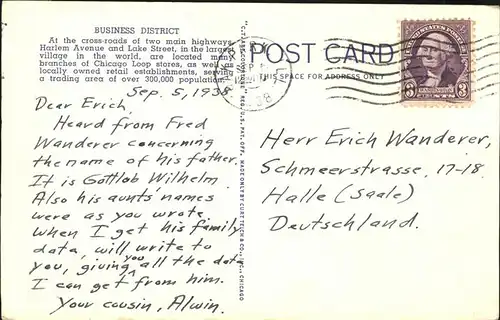 BUSINESS DISTRICT
At the cross-roads of two main highways,
Harlem Avenue and Lake Street, in the largest
village in the world, are located many
branches of Chicago Loop stores, as well as
locally owned retail establishments, serving
a trading area of over 300,000 population.
Sep. 5, 1938
Dear Erich,
Heard from Fred
Wanderer concerning
the name of his father.
It is Gottlob Wilhelm
Also his aunts' names
were as you wrote.
When I get his family
data, will write to
you, giving you all the data
I can get from him.
Your cousin, Alwin.
"C.T. ART-COLORTONE" REG. U.S. PAT. OFF. MADE ONLY BY CURT TEICH & CO., INC., CHICAGO
POST CARD
THIS SPACE FOR ADDRESS ONLY
UNITED STATES POSTAGE
3 WASHINGTON 3
Herr Erich Wanderer,
Schmeerstrasse, 17-18.
Halle (Saale)
Deutschland.